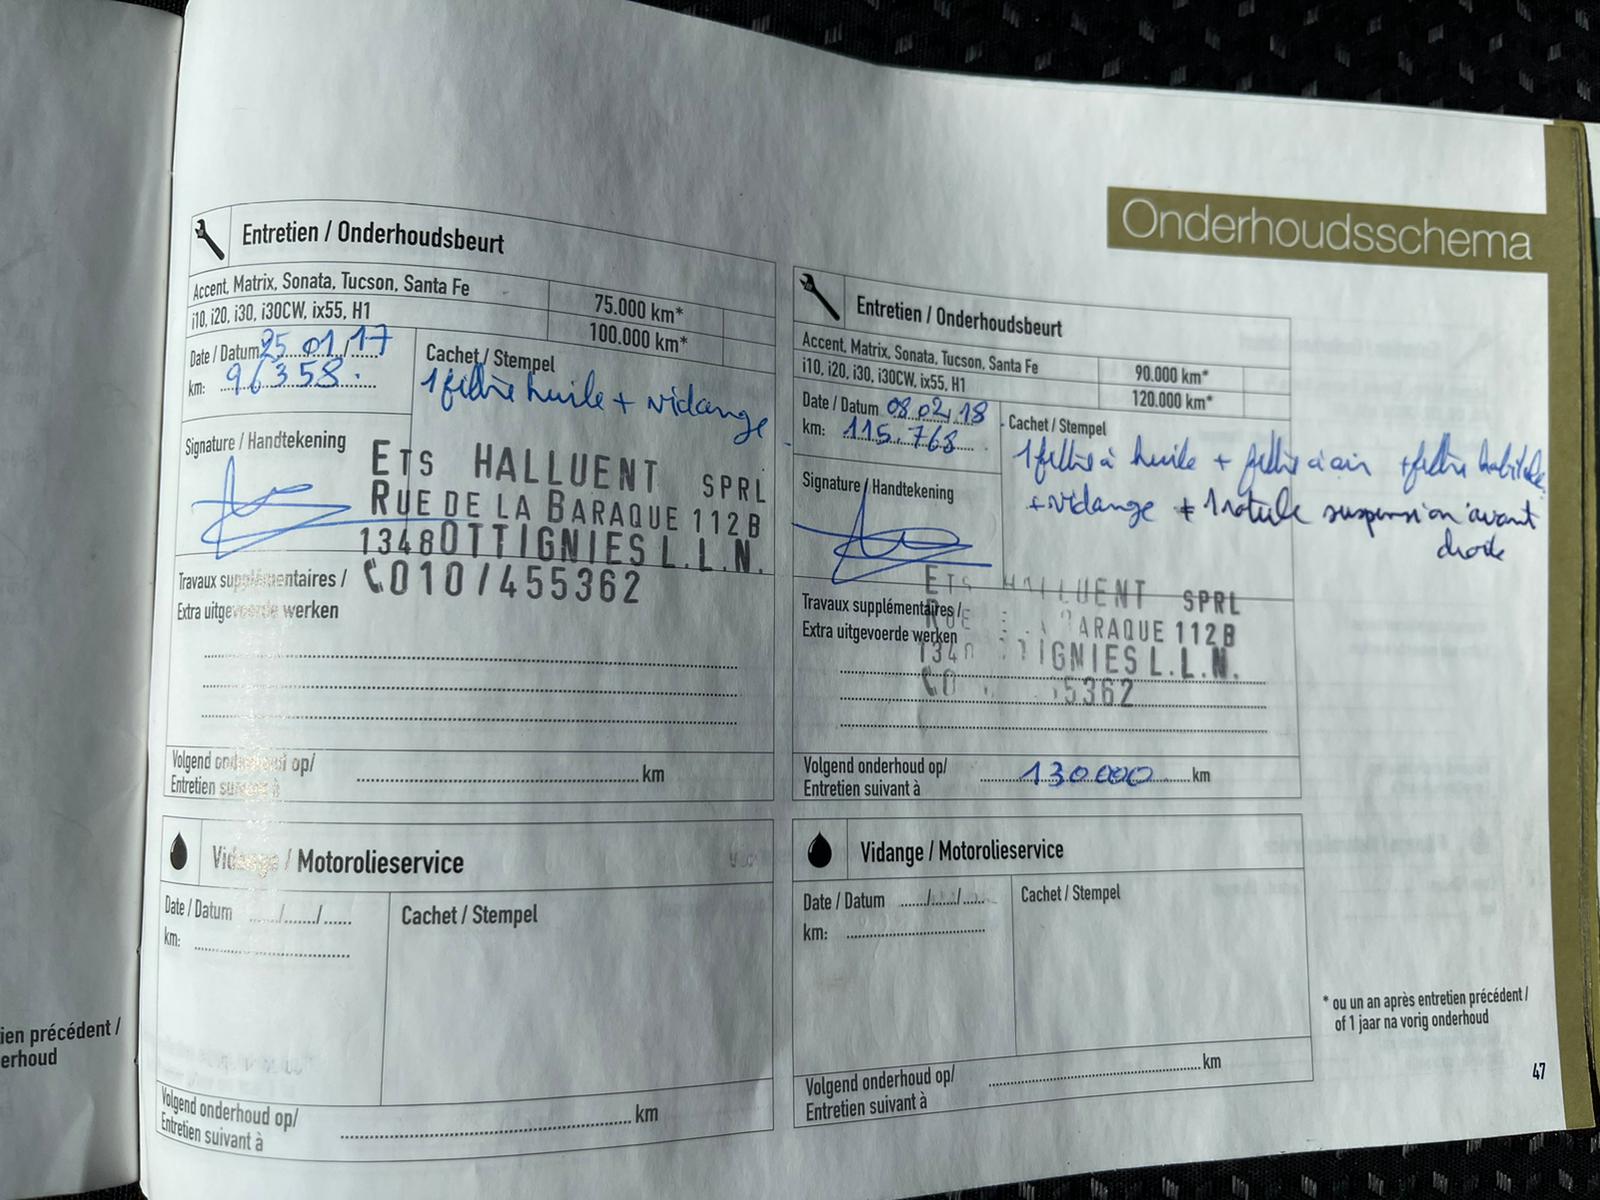 Onderhoudsschema
Entretien / Onderhoudsbeurt
Accent, Matrix, Sonata, Tucson, Santa Fe 75.000 km*
i10, i20, i30, i30CW, ix55, H1 100.000 km*
Date / Datum 25/01/17
km: 96358.
Cachet / Stempel
1 filtre huile + vidange
Signature / Handtekening
ETS HALLUENT SPRL
RUE DE LA BARAQUE 112B
1348 OTTIGNIES L.L.N.
010/455362
Travaux supplémentaires /
Extra uitgevoerde werken
Volgend onderhoud op/ km
Entretien suivant à
Vidange / Motorolieservice
Date / Datum ....../......./......
km:
Cachet / Stempel
Volgend onderhoud op/ km
Entretien suivant à
Entretien / Onderhoudsbeurt
Accent, Matrix, Sonata, Tucson, Santa Fe 90.000 km*
i10, i20, i30, i30CW, ix55, H1 120.000 km*
Date / Datum 08/02/18
km: 115.768
Cachet / Stempel
1 filtre à huile + filtre à air + filtre habitacle
+ vidange + 1 rotule suspension avant
droite
Signature / Handtekening
ETS HALLUENT SPRL
RUE BARAQUE 112B
1348 OTTIGNIES L.L.N.
55362
Travaux supplémentaires /
Extra uitgevoerde werken
Volgend onderhoud op/ 130000 km
Entretien suivant à
Vidange / Motorolieservice
Date / Datum ....../....../......
km:
Cachet / Stempel
Volgend onderhoud op/ km
Entretien suivant à
* ou un an après entretien précédent /
of 1 jaar na vorig onderhoud
47
ien précédent /
erhoud